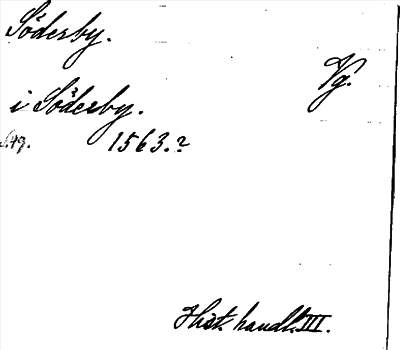 Söderby.
Vg.
i Söderby.
1563.?
Hist. handl. III.